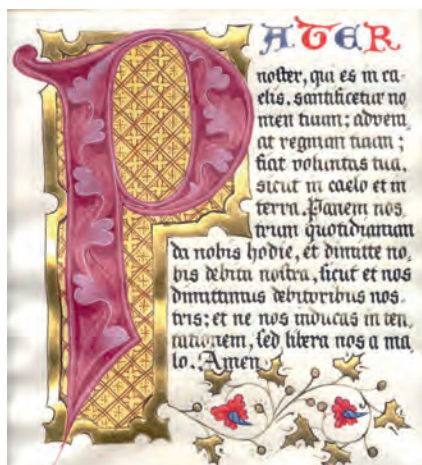 PATER
noster, qui es in ca-
elis. santificetur no
men tuum; adveni,
at regnum tuum;
fiat voluntas tua,
sicut in caelo et in
terra. Panem nos
trum quotidianum
da nobis hodie, et dimitte no,
bis debita nostra, sicut et nos
dimittimus debitoribus nos-
tris; et ne nos inducas in ten,
tationem, sed libera nos a ma
lo. Amen